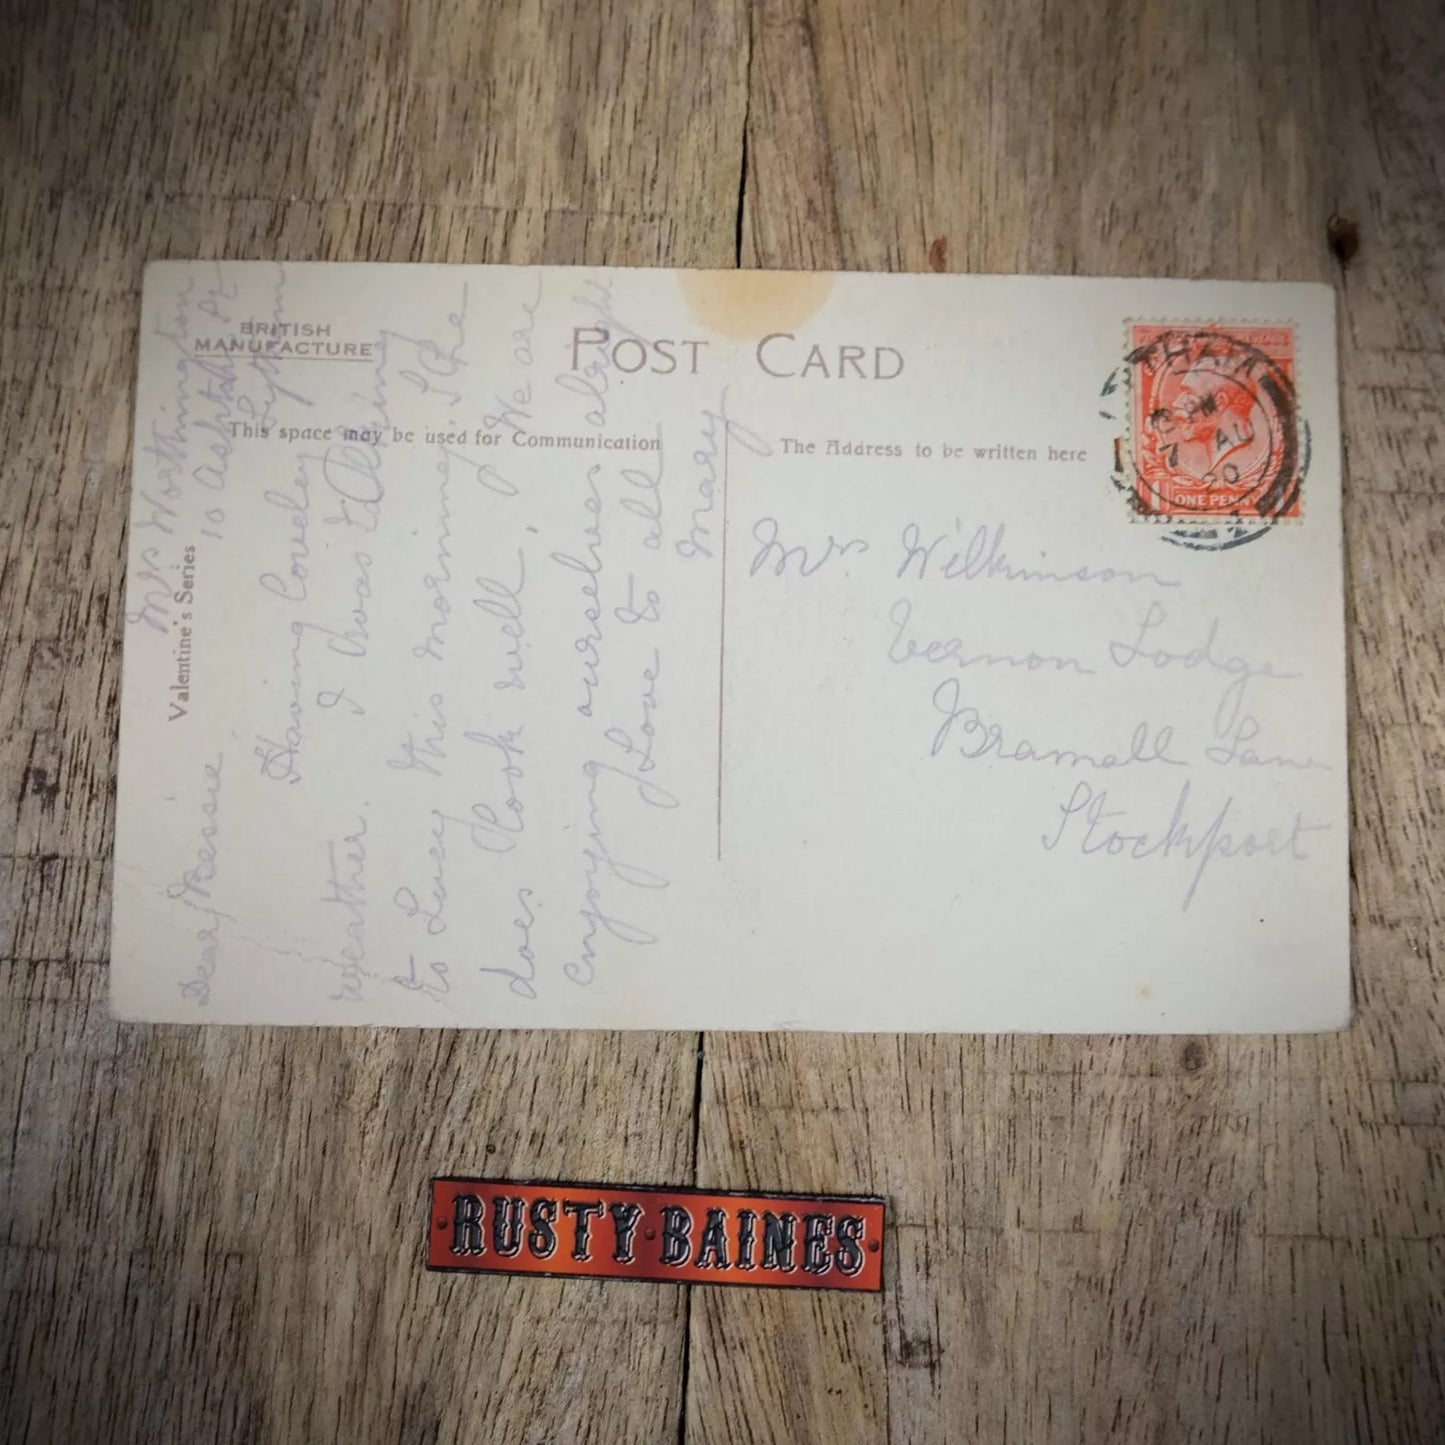 BRITISH
MANUFACTURE
POST CARD
This space may be used for Communication
The Address to be written here
Valentine's Series
Mrs Worthington
10
Lytham
Dear Bessie
Having Loveley
weather. I was talking
to Lucy this morning, She
does look well. We are
enjoying ourselves alright
Love to all
Mary
Mrs. Wilkinson
Vernon Lodge
Bramall Lane
Stockport
YTHAM
PM
7 AU
20
ONE PENNY
RUSTY·BAINES